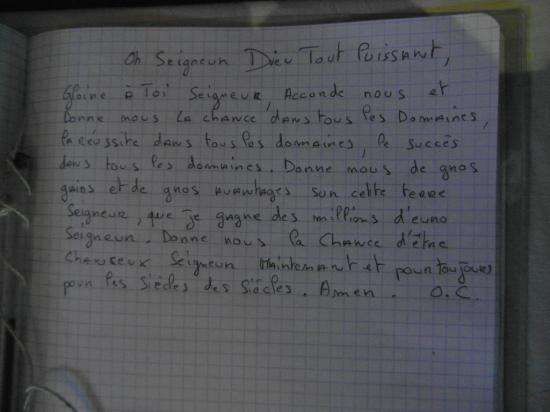 Oh Seigneur Dieu Tout Puissant,
Gloire à Toi Seigneur, Accorde nous et
Donne nous La chance dans tous les Domaines,
la réussite dans tous les domaines, le succès
dans tous les domaines. Donne nous de gros
gains et de gros avantages sur cette terre
Seigneur, que je gagne des millions d'euro
Seigneur. Donne nous la Chance d'être
Chanceux Seigneur Maintenant et pour toujours
pour les Siècles des Siècles. Amen. O.C.